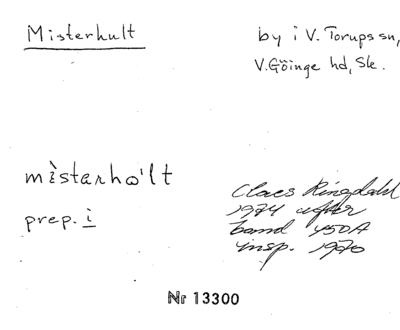 Misterhult
by i V. Torups sn,
V. Göinge hd, Sk.
mìstarhoˈlt
prep. i
Claes Ringdahl
1974 efter
band 450A
insp. 1970
Nr 13300